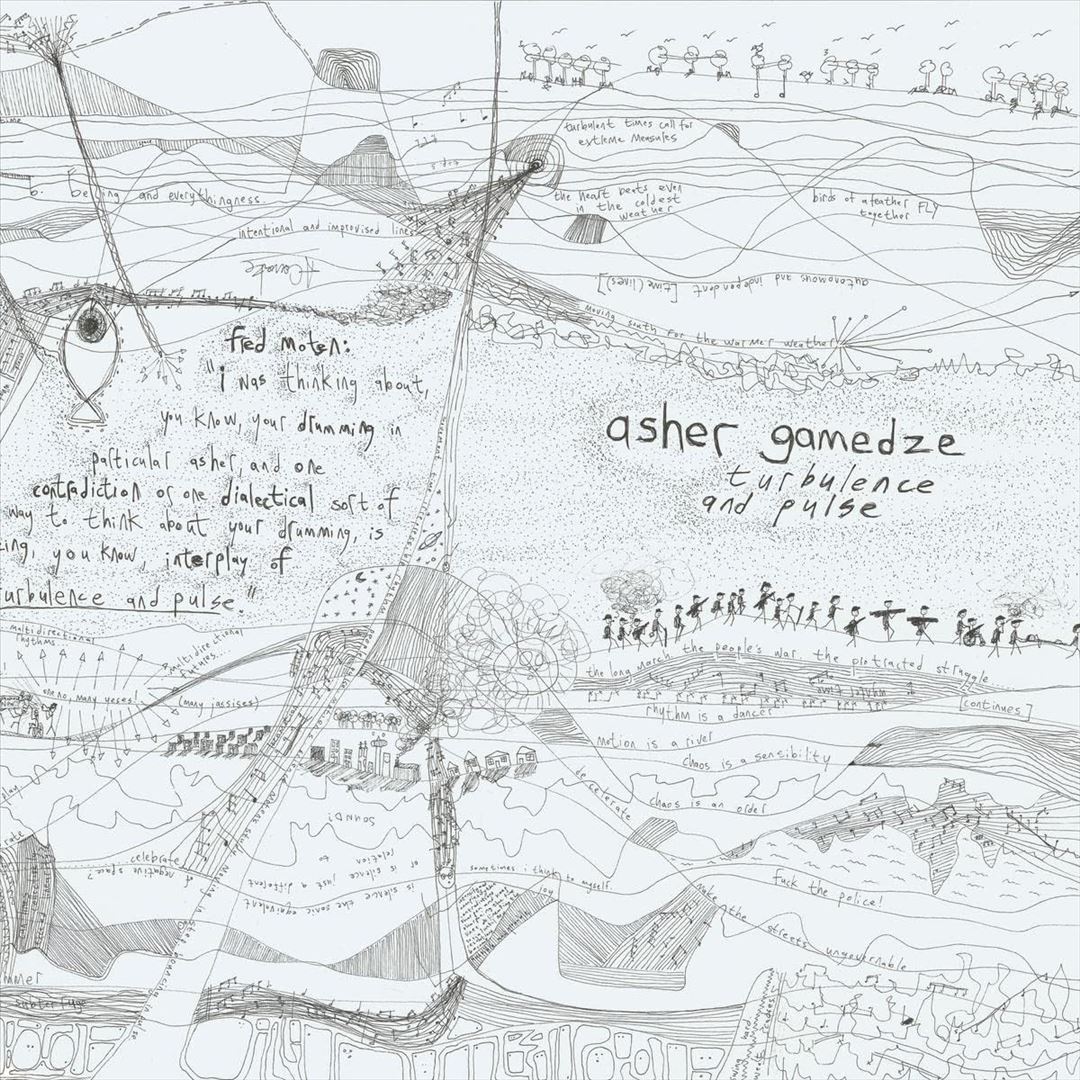 time
you
turbulent times call for
extreme measures
b. being and everythingness.
the heart beats even
in the coldest
weather
birds of a feather FLY
together
intentional and improvised lines
autonomous and independent
[time(lines)]
moving south for the warmer weather
fred moten:
"i was thinking about,
you know, your drumming in
particular asher, and one
contradiction or one dialectical sort of
way to think about your drumming, is
you know, interplay of
turbulence and pulse."
asher gamedze
turbulence
and pulse
multidirectional
rhythms...
multidire
futures...
one no, many yeses!
(many jassises)
the long march the people's war the protracted struggle.....
[continues]
rhythm is a dancer
motion is a river
chaos is a sensibility
chaos is an order
decelerate
SOUND!
celebrate
negative space?
is silence the sonic equivalent
of
or is silence just a different
relation to
sometimes i think to myself.
joy
fuck the police!
make the streets ungovernable
subterfuge